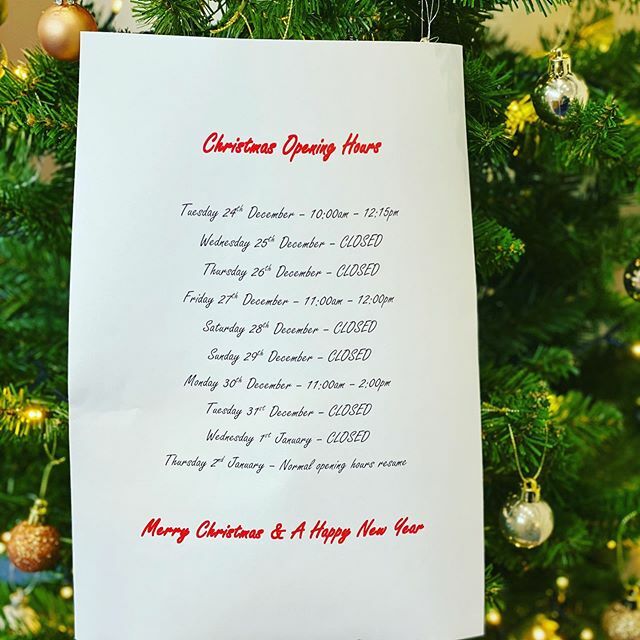 Christmas Opening Hours
Tuesday 24th December - 10:00am - 12:15pm
Wednesday 25th December - CLOSED
Thursday 26th December - CLOSED
Friday 27th December - 11:00am - 12:00pm
Saturday 28th December - CLOSED
Sunday 29th December - CLOSED
Monday 30th December - 11:00am - 2:00pm
Tuesday 31st December - CLOSED
Wednesday 1st January - CLOSED
Thursday 2nd January - Normal opening hours resume
Merry Christmas & A Happy New Year